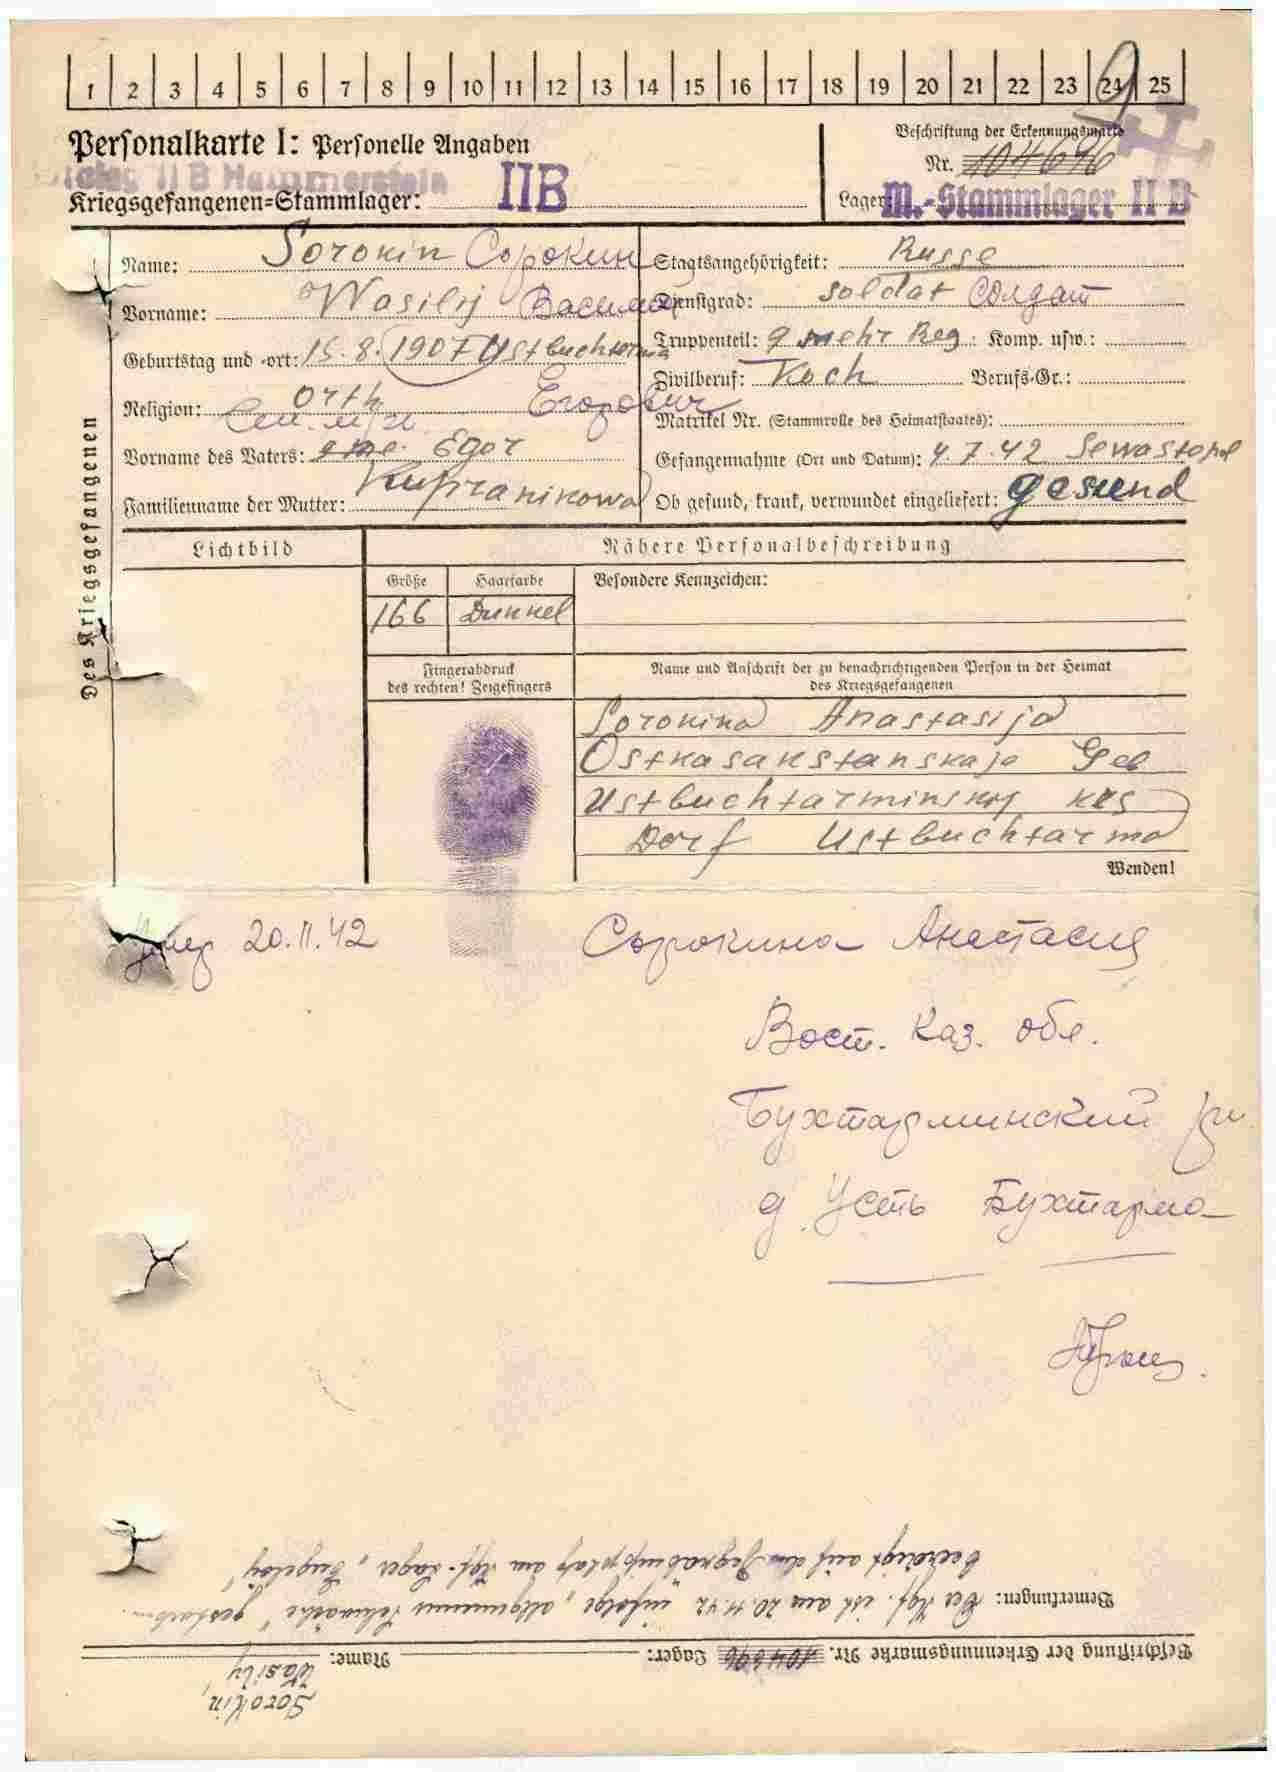 1 2 3 4 5 6 7 8 9 10 11 12 13 14 15 16 17 18 19 20 21 22 23 24 25
9
Personalkarte I: Personelle Angaben
Beschriftung der Erkennungsmarke
Nr. 104696
Stalag II B Hammerstein
Kriegsgefangenen-Stammlager: IIB
Lager: M.-Stammlager II B
Des Kriegsgefangenen
Name: Sorokin Сорокин
Vorname: Wasilij Василий
Geburtstag und -ort: 15.8.1907 Ustbuchtarma
Religion: Orth
Егорович
Vorname des Vaters: Egor
Familienname der Mutter:
Staatsangehörigkeit: Russe
Dienstgrad: Soldat Солдат
Truppenteil: 9 Reg. Komp. usw.:
Zivilberuf: Koch Berufs-Gr.:
Matrikel Nr. (Stammrolle des Heimatstaates):
Gefangennahme (Ort und Datum): 4.7.42 Sewastopol
Ob gesund, krank, verwundet eingeliefert: gesund
Lichtbild
Nähere Personalbeschreibung
Größe
Haarfarbe
Besondere Kennzeichen:
166
Dunkel
Fingerabdruck
des rechten! Zeigefingers
Name und Anschrift der zu benachrichtigenden Person in der Heimat
des Kriegsgefangenen
Sorokina Anastasija
Ostkasakstanskaje Geb
Ustbuchtarminskoj
Dorf Ustbuchtarma
Wenden!
Умер 20.11.42
Сорокина Анастасия
Вост. Каз. обл.
Бухтарминский рн
д. Усть Бухтарма
Beschriftung der Erkennungsmarke Nr. 104696 Lager: Name: Sorokin, Wasilij
Bemerkungen: Der Kgf. ist am 20.11.42 infolge „allgemeiner Schwäche" gestorben.
Beerdigt auf dem Begräbnisplatz am Kgf.-Lager